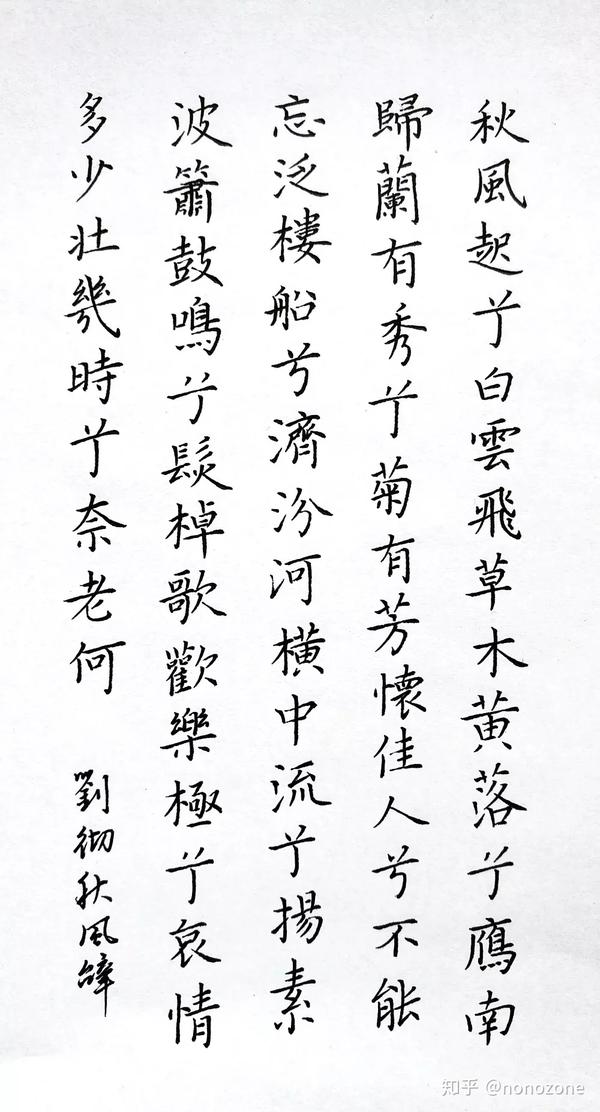 秋風起兮白雲飛草木黃落兮鴈南
歸蘭有秀兮菊有芳懷佳人兮不能
忘泛樓船兮濟汾河橫中流兮揚素
波簫鼓鳴兮髮棹歌歡樂極兮哀情
多少壯幾時兮奈老何
劉彻秋風辭
知乎 @nonozone